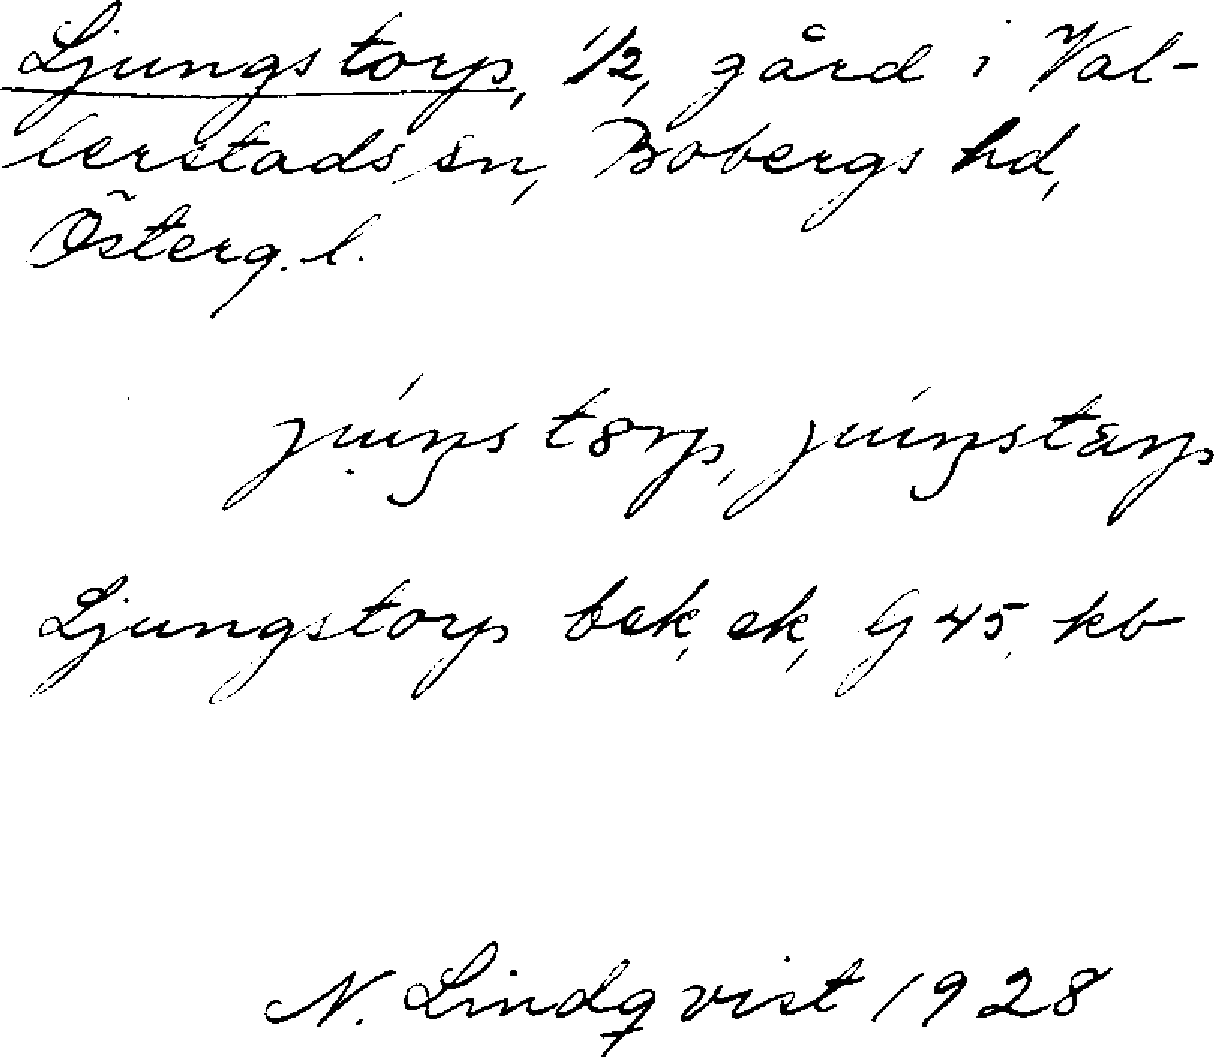 Ljungstorp, 1/2, gård i Val-
lerstads sn, Bobergs hd,
Österg. l.
júŋstorp, júŋstarp
Ljungstorp bek, ek, G 45, kb
N. Lindqvist 1928